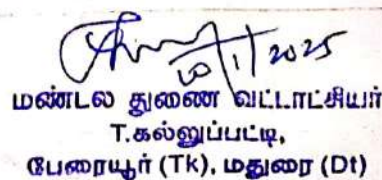 மண்டல துணை வட்டாட்சியர்
T.கல்லுப்பட்டி,
பேரையூர் (Tk), மதுரை (Dt)